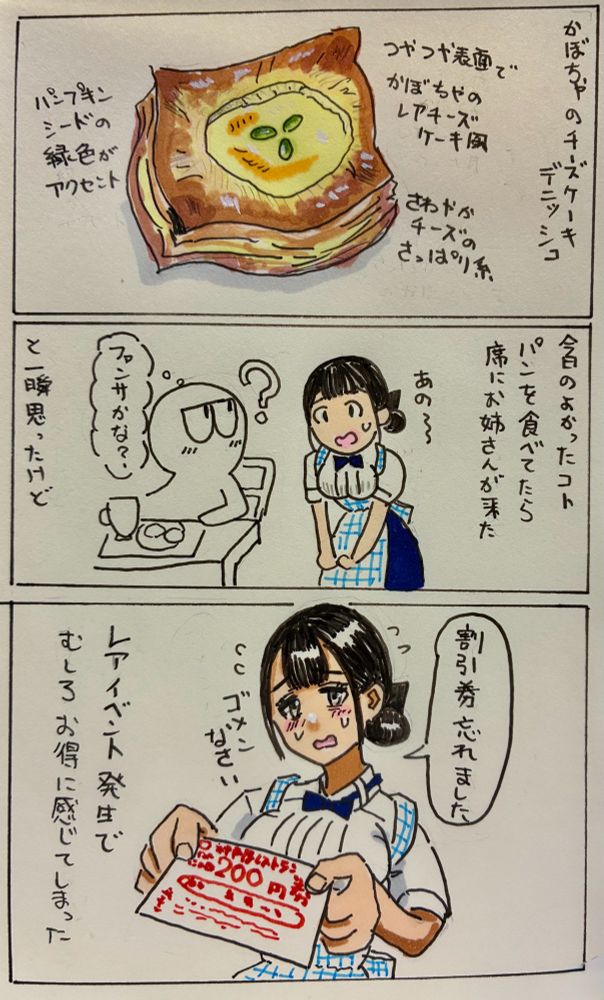 かぼちゃのチーズケーキ
デニッシュ
つやつや表面で
かぼちゃの
レアチーズ
ケーキ風
さわやか
チーズの
さっぱり系
パンプキン
シードの
緑色が
アクセント
今日のよかったコト
パンを食べてたら
席にお姉さんが来た
あの〜〜
?
ファンサかな?
と一瞬思ったけど
割引券忘れました
ゴメン
なさい
レストラン
200円券
レアイベント発生で
むしろお得に感じてしまった